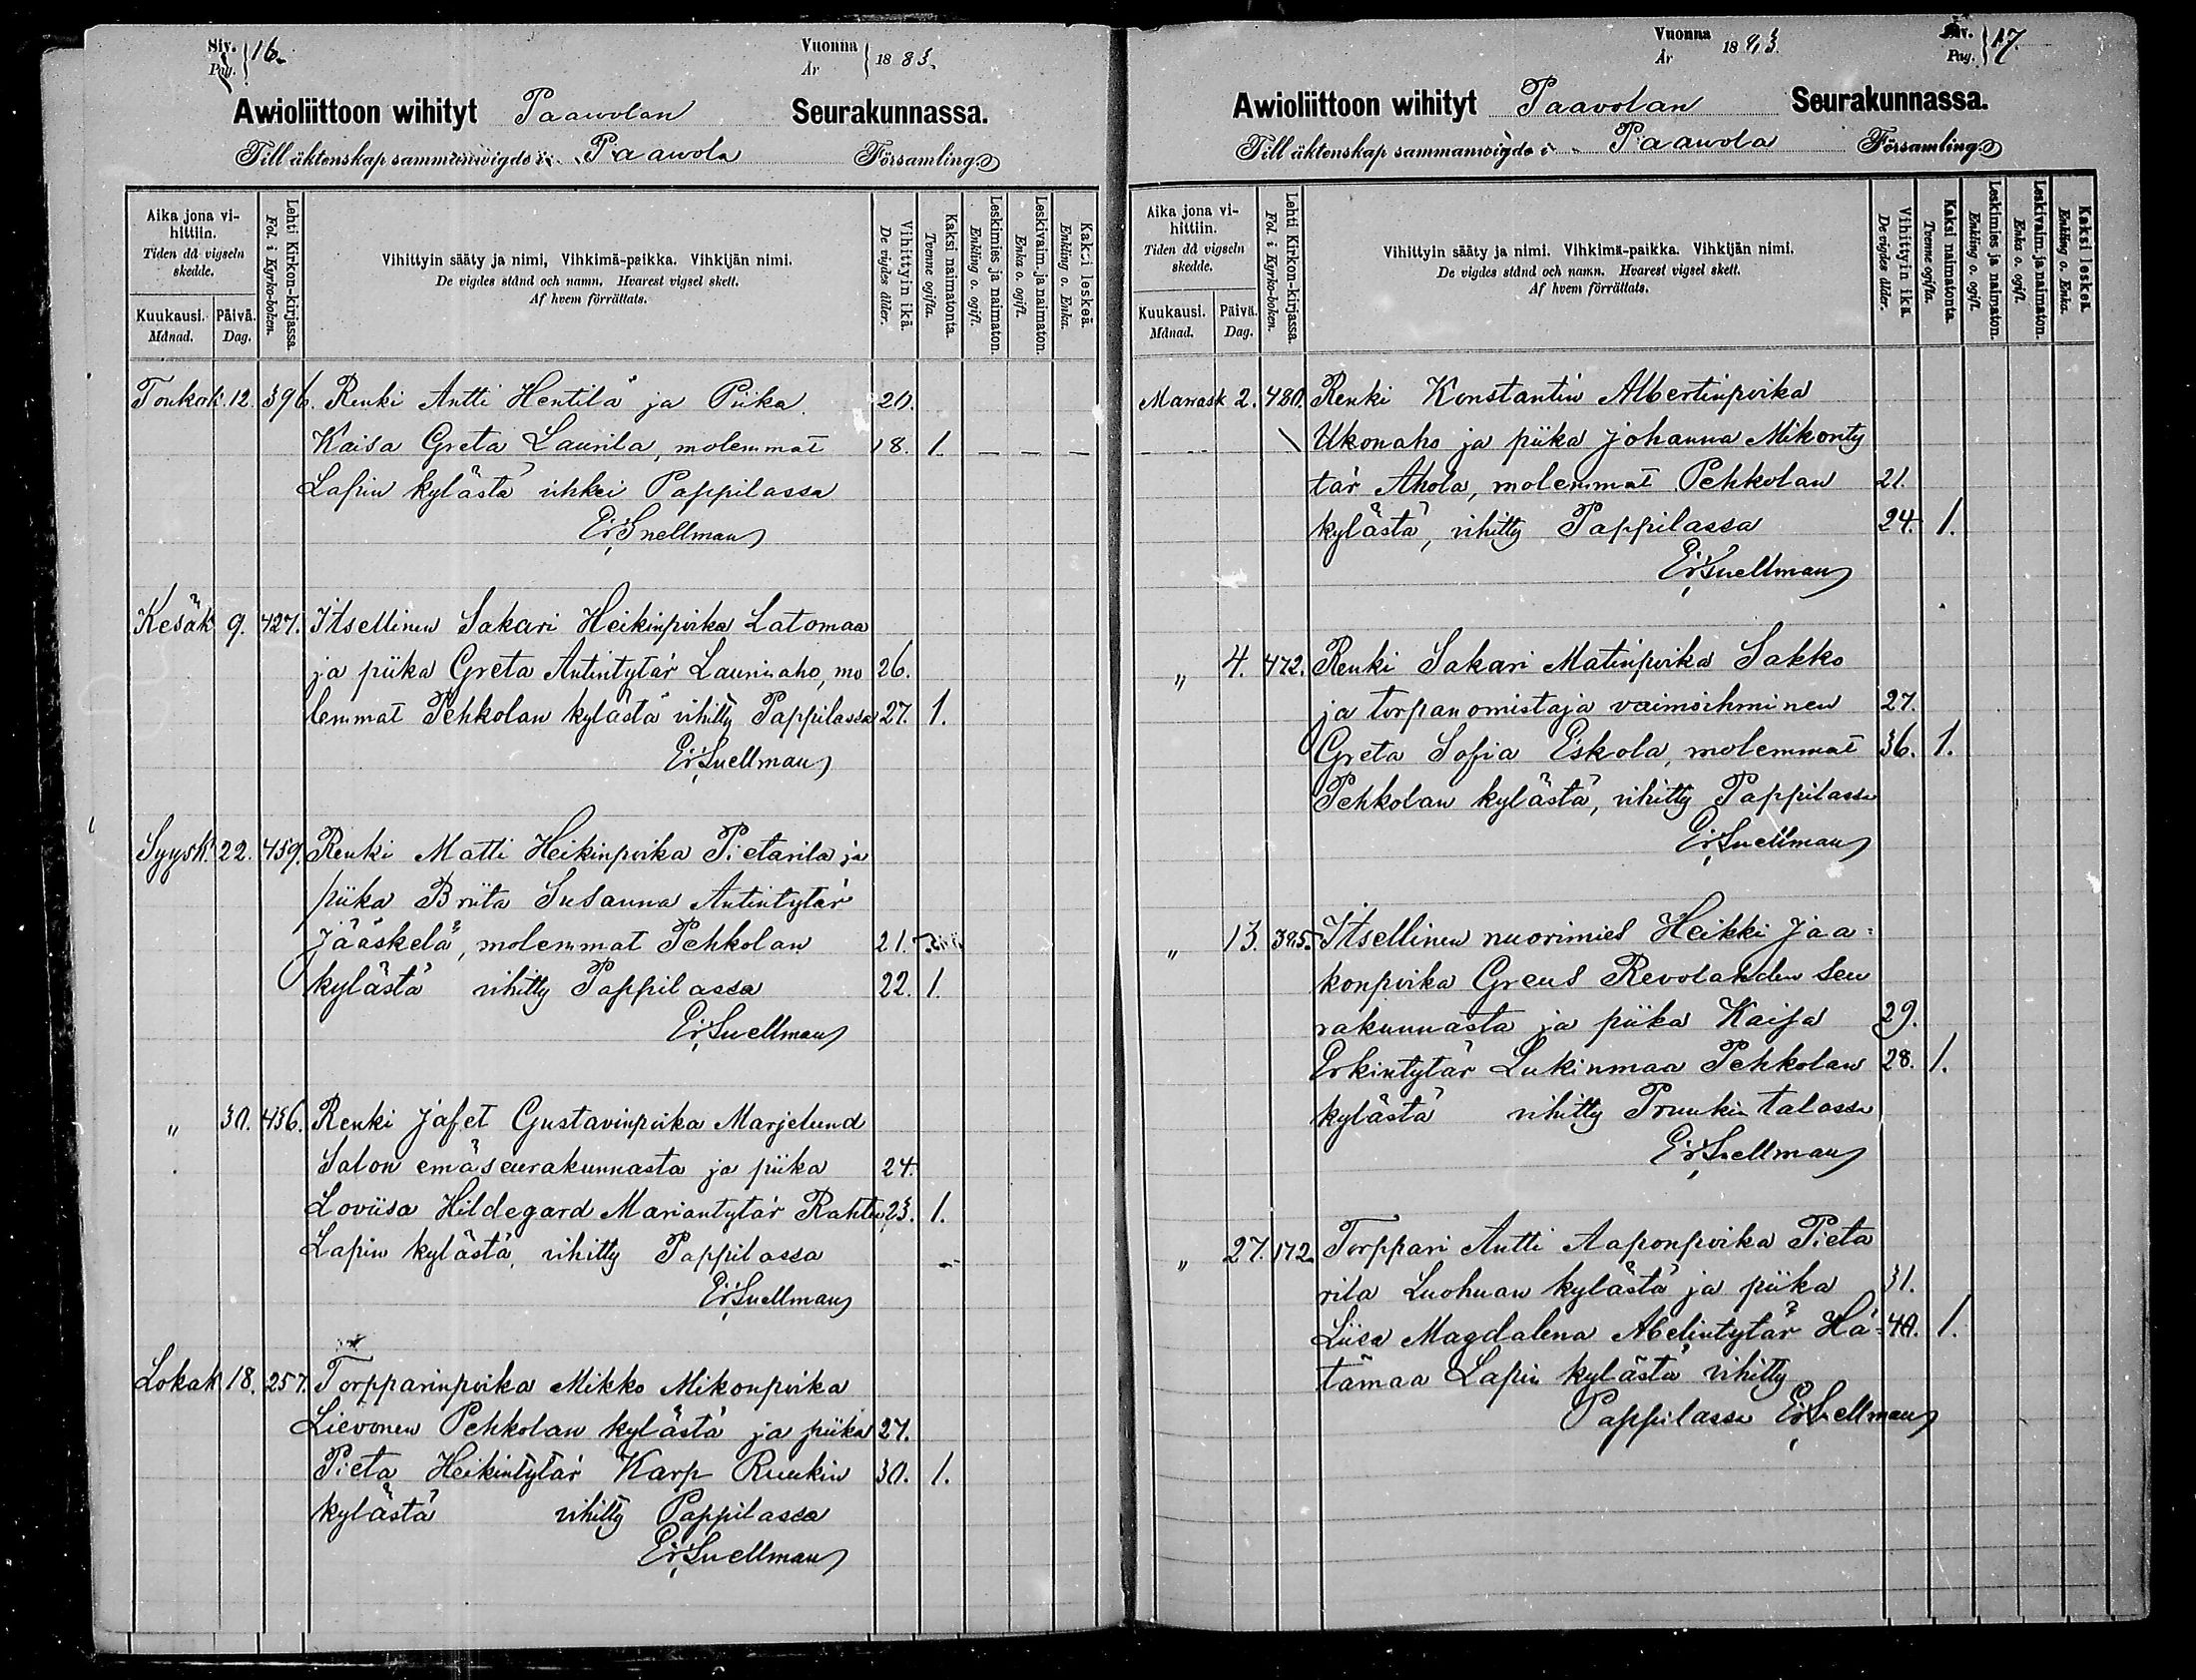 Siv. 16.
Pag.
Vuonna 1883.
År
Awioliittoon wihityt Paawolan Seurakunnassa.
Till äktenskap sammanwigde i Paawola Församling
Aika jona vihittiin.
Tiden då vigseln skedde.
Kuukausi. Månad.
Päivä. Dag.
Lehti Kirkon-kirjassa.
Fol. i Kyrko-boken.
Vihittyin sääty ja nimi, Vihkimä-paikka. Vihkijän nimi.
De vigdes stånd och namn. Hvarest vigsel skett.
Af hvem förrättats.
Vihittyin ikä.
De vigdes ålder.
Kaksi naimatonta.
Tvenne ogifta.
Leskimies ja naimaton.
Enkling o. ogift.
Leskivaim. ja naimaton.
Enka o. ogift.
Kaksi leskeä.
Enkling o. Enka.
Toukok. 12. 396. Renki Antti Hentilä ja Piika 20.
Kaisa Greta Laurila, molemmat 18. 1. — — —
Lapin kylästä vihkei Pappilassa
Er. Snellman
Kesäk 9. 427. Itsellinen Sakari Heikinpoika Latomaa
ja piika Greta Antintytär Launinaho, mo 26.
lemmat Pehkolan kylästä vihitty Pappilassa 27. 1.
Er. Snellman
Syysk. 22. 459. Renki Matti Heikinpoika Pietarila ja
piika Briita Susanna Antintytär
Jääskelä, molemmat Pehkolan 21.
kylästä vihitty Pappilassa 22. 1.
Er. Snellman
" 30. 436. Renki Jafet Gustavinpoika Marjelund
Salon emäseurakunnasta ja piika 24.
Loviisa Hildegard Mariantytär Rahtu 23. 1.
Lapin kylästä, vihitty Pappilassa
Er. Snellman
Lokak 18. 257. Torpparinpoika Mikko Mikonpoika
Lievonen Pehkolan kylästä ja piika 27.
Pieta Heikintytär Karp Ruukin 30. 1.
kylästä vihitty Pappilassa
Er. Snellman
Vuonna 1893.
År
Siv. 17.
Pag.
Awioliittoon wihityt Paavolan Seurakunnassa.
Till äktenskap sammanwigde i Paawola Församling
Aika jona vihittiin.
Tiden då vigseln skedde.
Kuukausi. Månad.
Päivä. Dag.
Lehti Kirkon-kirjassa.
Fol. i Kyrko-boken.
Vihittyin sääty ja nimi. Vihkimä-paikka. Vihkijän nimi.
De vigdes stånd och namn. Hvarest vigsel skett.
Af hvem förrättats.
Vihittyin ikä.
De vigdes ålder.
Kaksi naimatonta.
Tvenne ogifta.
Leskimies ja naimaton.
Enkling o. ogift.
Leskivaim. ja naimaton.
Enka o. ogift.
Kaksi leskeä.
Enkling o. Enka.
Marrask 2. 480. Renki Konstantin Albertinpoika
Ukonaho ja piika Johanna Mikonty
tär Ahola, molemmat Pehkolan 21.
kylästä, vihitty Pappilassa 24. 1.
Er. Snellman
" 4. 472. Renki Sakari Matinpoika Sakko
ja torpanomistaja vaimoihminen 27.
Greta Sofia Eskola, molemmat 36. 1.
Pehkolan kylästä, vihitty Pappilassa
Er. Snellman
" 13. 395. Itsellinen nuorimies Heikki Jaa=
konpoika Greus Revolahden seu
rakunnasta ja piika Kaisa 29.
Erkintytär Lukinmaa Pehkolan 28. 1.
kylästä vihitty Pruukin talossa
Er. Snellman
" 27. 172. Torppari Antti Aaponpoika Pieta
rila Luohuan kylästä ja piika 31.
Liisa Magdalena Abelintytär Hä= 40. 1.
tämaa Lapin kylästä vihitty
Pappilassa Er. Snellman